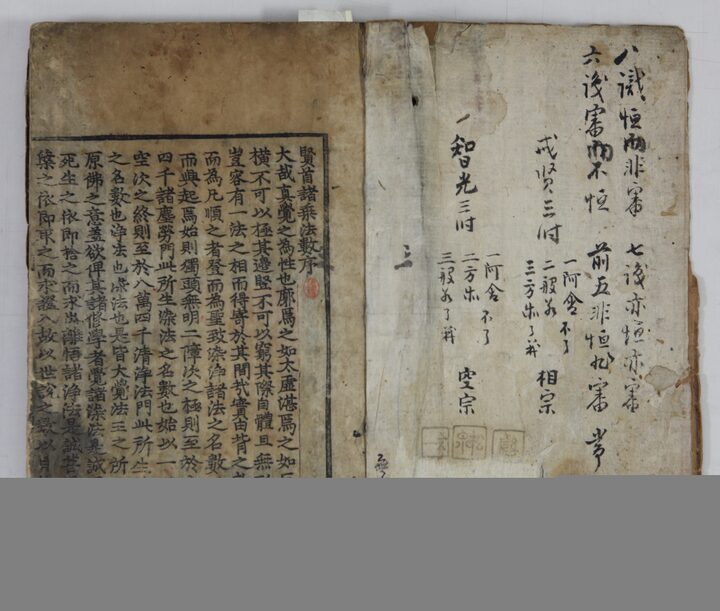 八識恒而非審 七識亦恒亦審
六識審而不恒 前五非恒非審
戒賢三時
一阿含不了
二般若
三方木了義 相宗
一智光三時
一阿含不了
二方木
三般若了義 空宗
三
賢首諸乘法數序
大哉真覺之為性也廓焉之如太虛湛焉之如
橫不可以極其邊竪不可以窮其際自體且無
豈容有一法之相而得寄於其間哉實由背之
而為凡順之者登而為聖致染淨諸法之名數
而興起焉始則獨頭無明二障次之極則至於
四千諸塵勞門此所生染法之名數也始以一
空次之終則至於八萬四千清淨法門此所生
之名數也淨法也染法也是皆大覺法王之所
原佛之意蓋欲俾其諸修學者覺諸染法是誠
死生之依即捨之而求出離悟諸淨法是誠菩
槃之依即取之而求證入故以世諦之數以